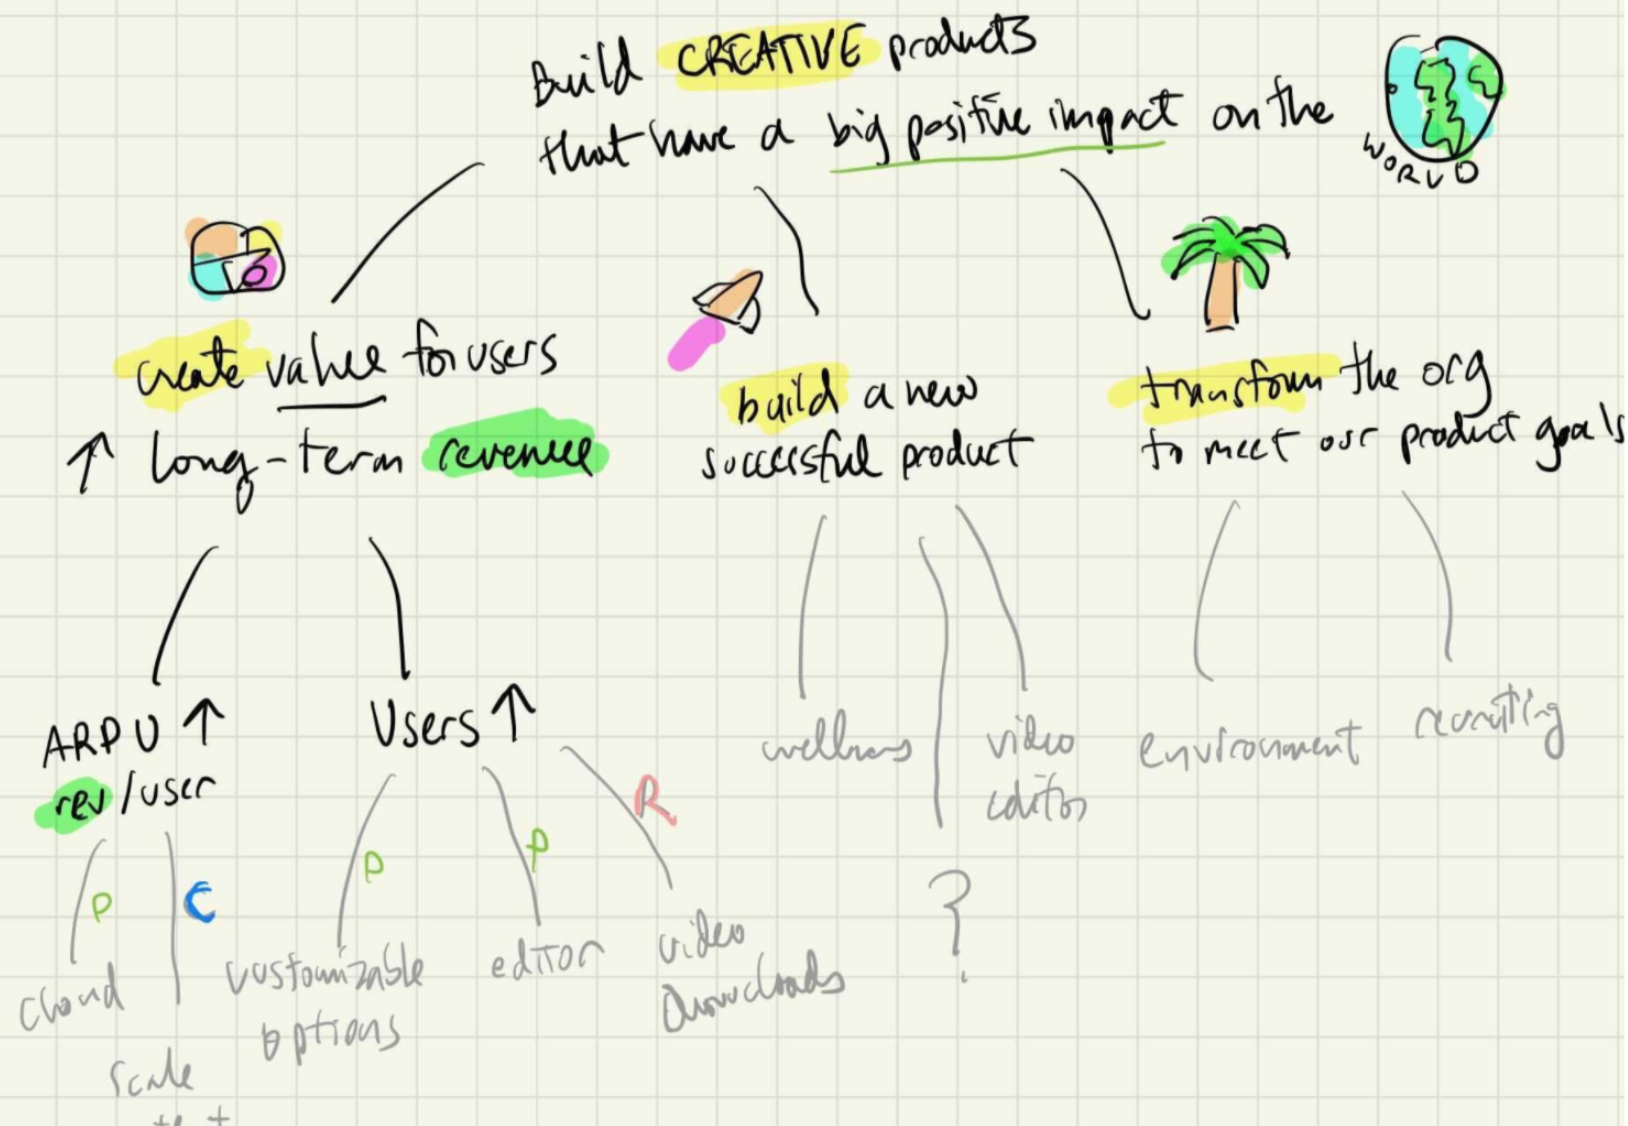 Build CREATIVE products
that have a big positive impact on the
WORLD
create value for users
↑ long-term revenue
build a new
successful product
transform the org
to meet our product goals
ARPU ↑
rev/user
Users ↑
wellness
video
editor
environment
recruiting
P
C
P
P
R
cloud
scale
customizable
options
editor
video
downloads
?